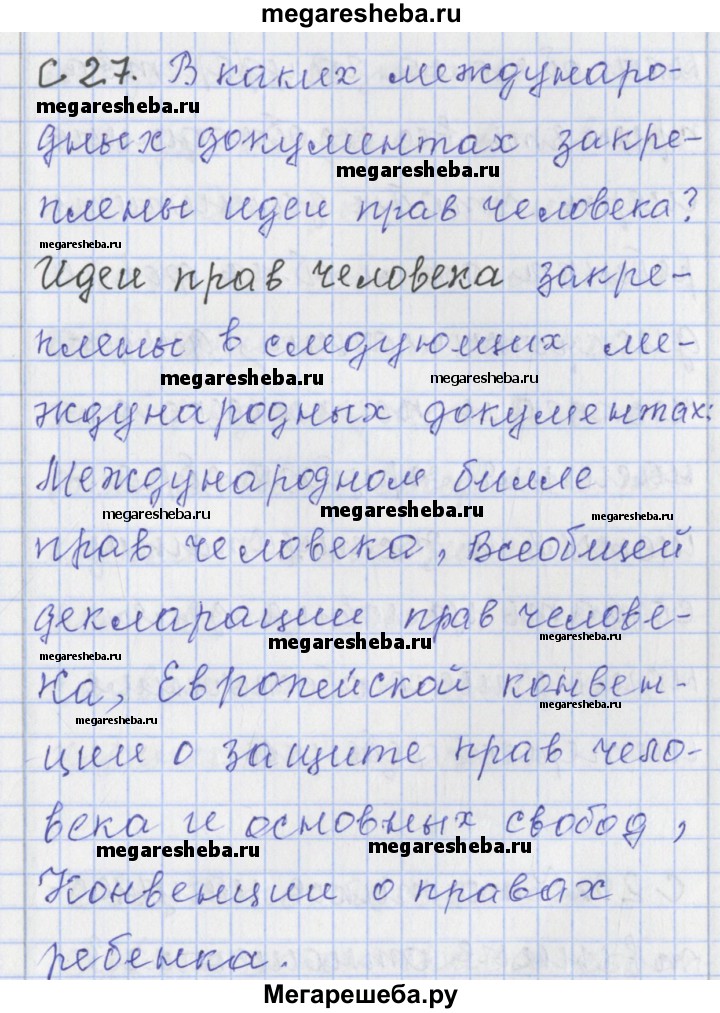 megaresheba.ru
С 27. В каких междунаро-
megaresheba.ru
дных документах закре-
megaresheba.ru
плены идеи прав человека?
megaresheba.ru
Идеи прав человека закре-
плены в следующих ме-
megaresheba.ru megaresheba.ru
ждународных документах:
Международном билле
megaresheba.ru megaresheba.ru megaresheba.ru
прав человека, Всеобщей
декларации прав челове-
megaresheba.ru megaresheba.ru
megaresheba.ru
ка, Европейской конвен-
megaresheba.ru megaresheba.ru
ции о защите прав чело-
века и основных свобод,
megaresheba.ru megaresheba.ru
Конвенции о правах
ребенка.
Мегарешеба.ру